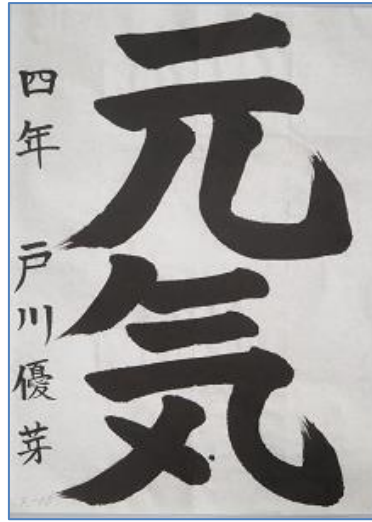 元気
四年 戸川優芽